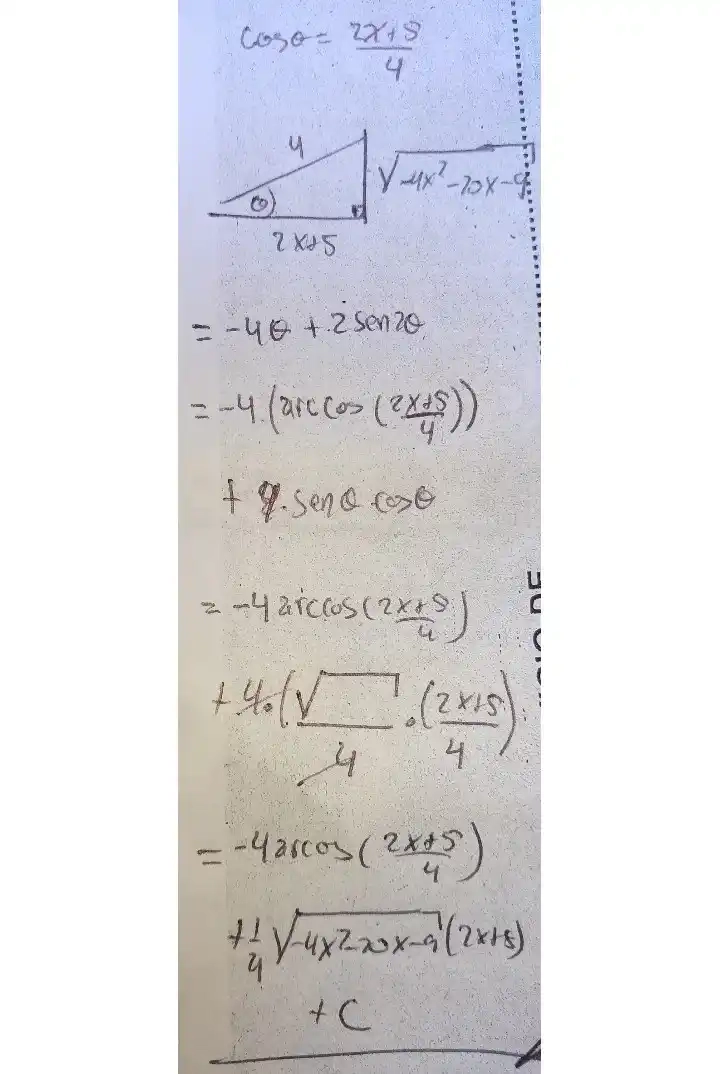 cos θ = (2x+5)/4
4
√-4x²-20x-9
θ
2x+5
= -4θ + 2 sen2θ
= -4.(arc cos ((2x+5)/4))
+ 4. senθ.cosθ
= -4 arccos((2x+5)/4)
+ 4.(√ /4 . (2x+5)/4)
= -4 arcos((2x+5)/4)
+ 1/4 √-4x²-20x-9 (2x+5)
+ C